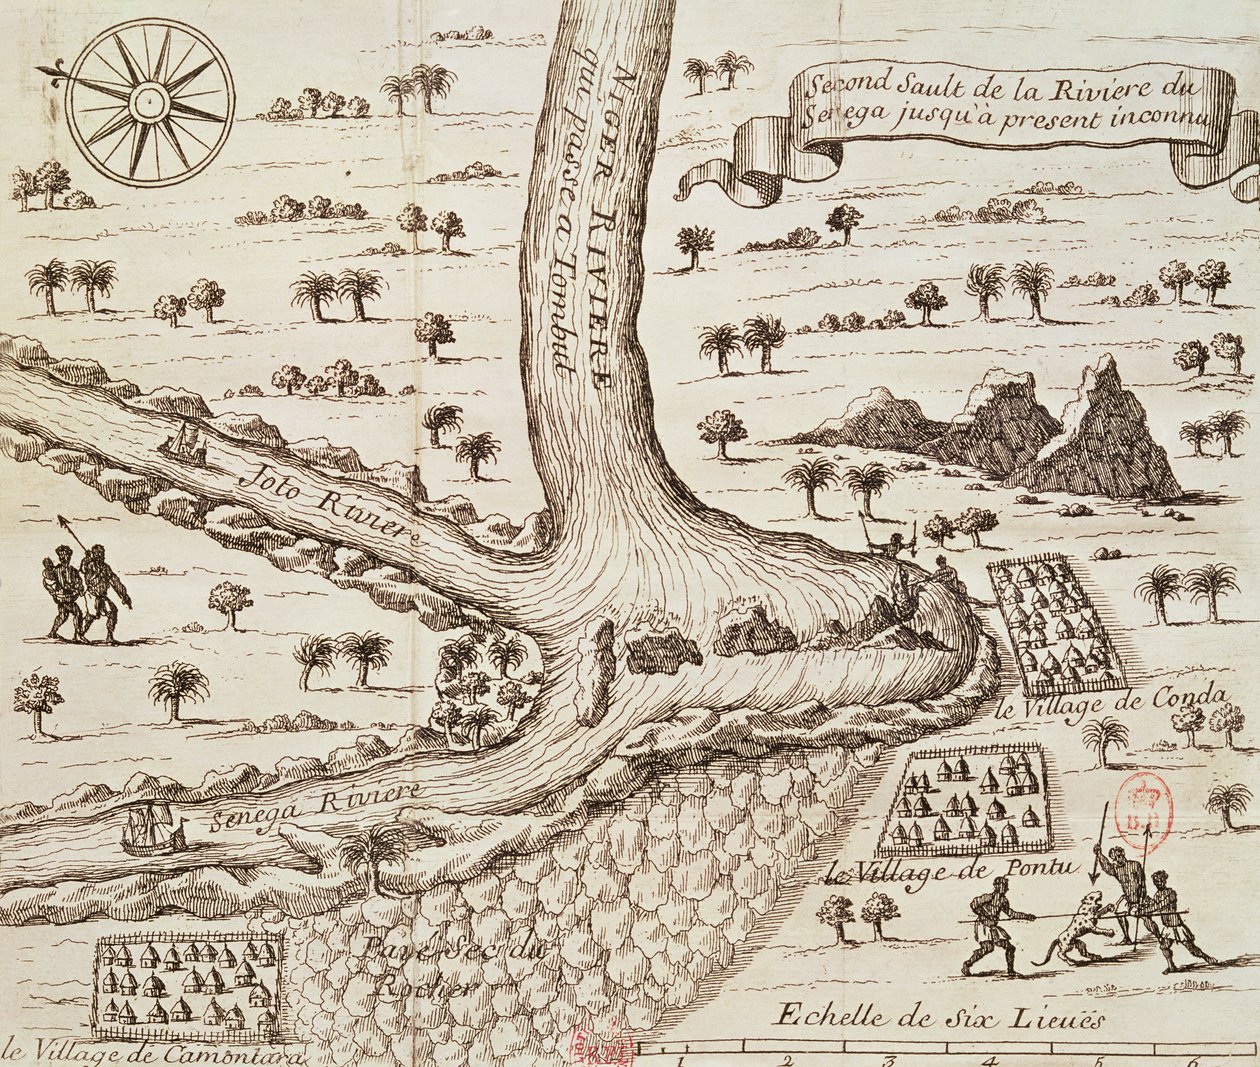 Second Sault de la Riviere du
Senega jusqu'à present inconnu
NIGER RIVIERE
qui passe a Tombut
Joto Riviere
Senega Riviere
le Village de Conda
le Village de Pontu
Pavé Sec du
Rocher
le Village de Camontara
Echelle de six Lieuës
1 2 3 4 5 6